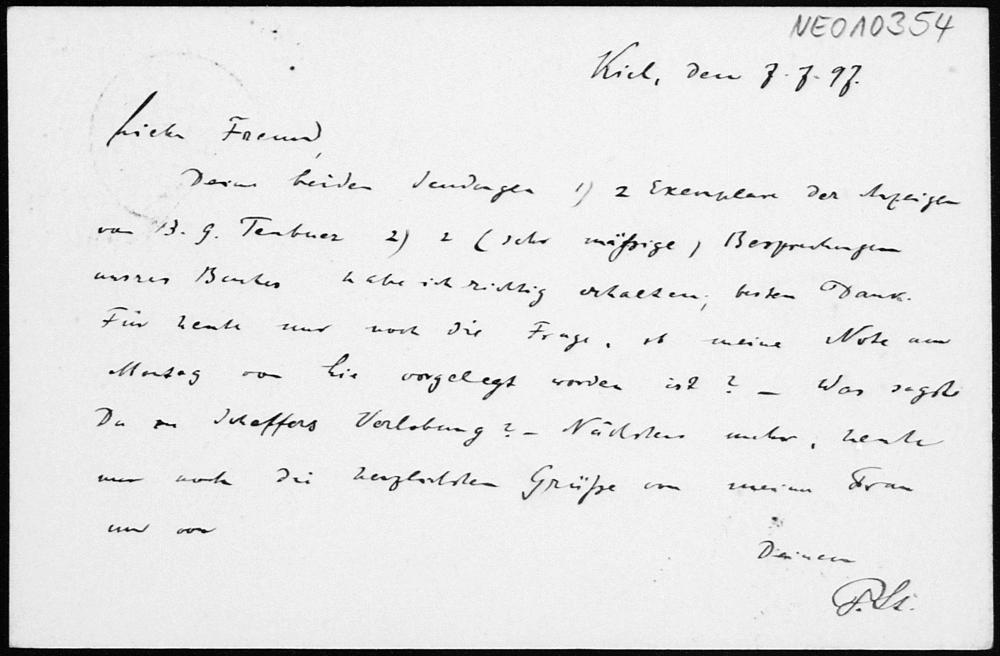 NEO10354
Kiel, den 7.7.97.
Lieber Freund,
Deine beiden Sendungen 1) 2 Exemplare der Anzeigen
von B. G. Teubner 2) 2 (sehr mäßige) Besprechungen
unsres Buches habe ich richtig erhalten, besten Dank.
Für heute nur noch die Frage, ob meine Note am
Montag von Lie vorgelegt worden ist? – Was sagst
Du zu Scheffers Verlobung? – Nächstens mehr, heute
nur noch die herzlichsten Grüße von meiner Frau
und von
Deinem
P. St.